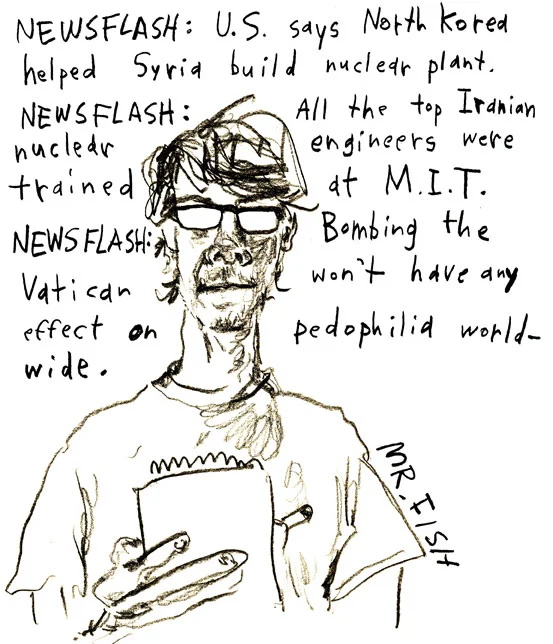 NEWSFLASH: U.S. says North Korea
helped Syria build nuclear plant.
NEWSFLASH: All the top Iranian
nuclear engineers were
trained at M.I.T.
NEWSFLASH: Bombing the
Vatican won't have any
effect on pedophilia world-
wide.
MR. FISH